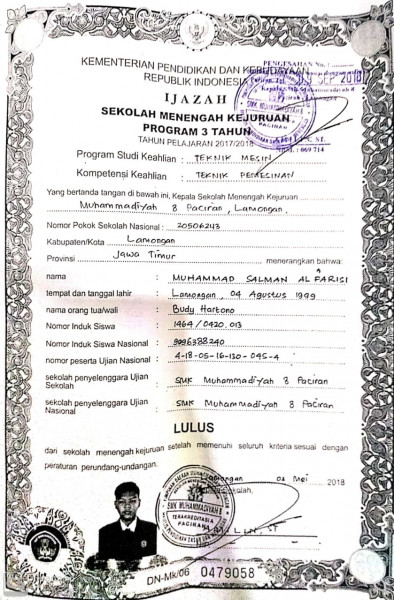 KEMENTERIAN PENDIDIKAN DAN KEBUDAYAAN
REPUBLIK INDONESIA
PENGESAHAN No.
SEP 2018
IJAZAH
SEKOLAH MENENGAH KEJURUAN
PROGRAM 3 TAHUN
TAHUN PELAJARAN 2017/2018
Program Studi Keahlian : TEKNIK MESIN
Kompetensi Keahlian : TEKNIK PEMESINAN
Yang bertanda tangan di bawah ini, Kepala Sekolah Menengah Kejuruan
Muhammadiyah 8 Paciran, Lamongan.
Nomor Pokok Sekolah Nasional : 20506243
Kabupaten/Kota : Lamongan
Provinsi : Jawa Timur menerangkan bahwa:
nama : MUHAMMAD SALMAN AL FARISI
tempat dan tanggal lahir : Lamongan, 04 Agustus 1999
nama orang tua/wali : Budy Hartono
Nomor Induk Siswa : 1464 / 0420.013
Nomor Induk Siswa Nasional : 9996388240
nomor peserta Ujian Nasional : 4-18-05-16-130-045-4
sekolah penyelenggara Ujian : SMK Muhammadiyah 8 Paciran
Sekolah
sekolah penyelenggara Ujian : SMK Muhammadiyah 8 Paciran
Nasional
LULUS
dari sekolah menengah kejuruan setelah memenuhi seluruh kriteria sesuai dengan
peraturan perundang-undangan.
Lamongan, 03 Mei 2018
SMK MUHAMMADIYAH 8
TERAKREDITASI
PACIRAN
DN-Mk/06 0479058